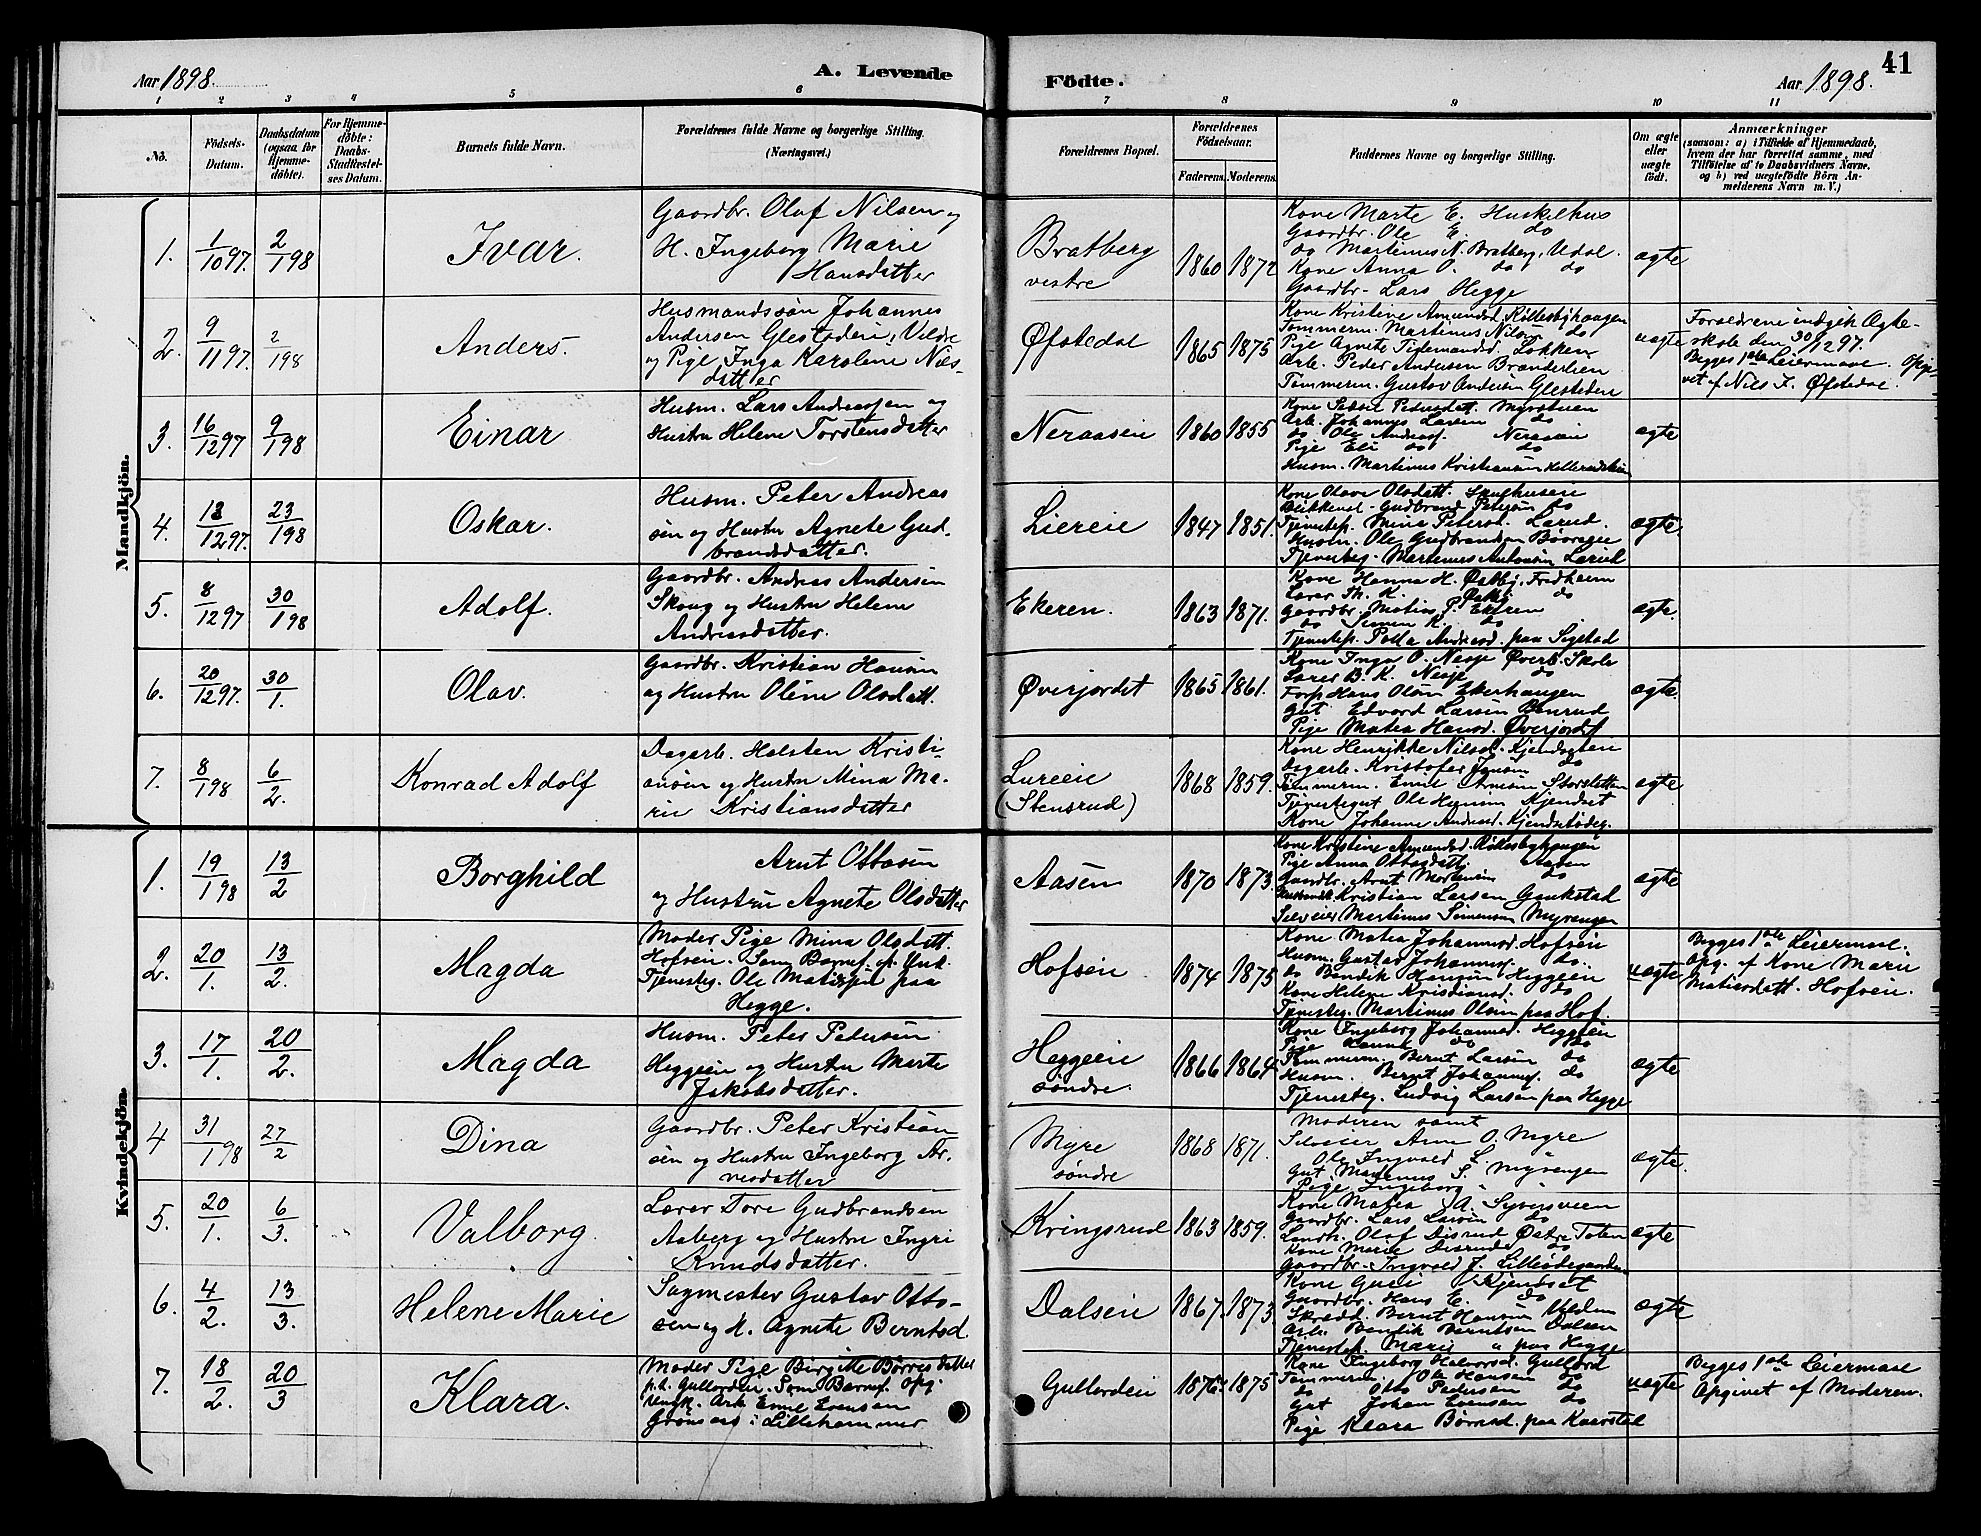 41
Aar 1898.
A. Levende
Födte.
Aar 1898.
1 2 3 4 5 6 7 8 9 10 11
No.
Födsels-
Datum.
Daabsdatum
(ogsaa for
Hjemme-
döbte).
For Hjemme-
döbte:
Daabs-
Stadfæstel-
ses Datum.
Barnets fulde Navn.
Forældrenes fulde Navne og borgerlige Stilling.
(Næringsvei.)
Forældrenes Bopæl.
Forældrenes
Födselsaar.
Faderens.
Moderens.
Faddernes Navne og borgerlige Stilling.
Om ægte
eller
uægte
födt.
Anmærkninger
(saasom: a) i Tilfælde af Hjemmedaab,
hvem der har forrettet samme, med
Tilföielse af to Daabsvidners Navne.
og b) ved uægtefödte Börn An-
melderens Navn m. V.)
Mandkjön.
1. 1/10 97. 2/1 98 Ivar.
Gaardbr. Olaf Nilsen og
H. Ingeborg Marie
Hansdatter
Bratberg
vestre
1860 1872
Kone Marte E. Huskelhus
Gaardbr. Ole E. do
do Martinus N. Bratberg, Udal.
Kone Anna O. do do
Gaardbr. Lars Hegge
ægte
2. 9/11 97. 2/1 98 Anders.
Husmandssøn Johannes
Andersen Glestadeie, Veldre
og Pige Inga Karoline Næs-
datter
Øfstedal
1865 1875
Kone Kristine Amundsd. Røllesbyhaugen
Tømmerm. Martinus Nilsen do
Pige Agnete Tidemandsd. Løkken
Arb. Peder Andersen Brændelien
Tømmerm. Gustav Andersen Glesteden
uægte
Forældrene indgik Ægte-
skab den 30/12 97.
Begges 1ste Leiermaal. Opgi-
vet af Nils J. Øfstedal.
3. 16/12 97 9/1 98 Einar
Husm. Lars Andreassen og
Hustru Helene Torstensdatter
Neraaseie
1860 1855
Kone Pedersdatt. Myrstuen
Arb. Johannes Larsen do
do Ole Andreass. Neraasen
Pige Eli do do
Husm. Martinus Kristiansen
ægte
4. 12/97. 23/1 98 Oskar.
Husm. Peter Andreas
sen og Hustru Agnete Gud-
brandsdatter.
Liereie
1847 1851.
Kone Olave Olsdatt. Skughuseie
Gudbrand Petersen do
Tjenestep. Mina Petersd. Larud.
Husm. Ole Gudbrandsen
Tjenesteg. Martinus Antonsen Larud
ægte.
5. 8/12 97 30/1 98 Adolf.
Gaardbr. Andreas Andersen
Skoug og Hustru Helene
Andreasdatter.
Ekeren.
1863 1871.
Kone Hanna H. Østby, Fredheim
Lærer Th. K. Østby do
Gaardbr. Matias P. Ekeren
do Simen K. do
Tjenestep. Andreasd. paa Sigstad
ægte.
6. 20/12 97. 30/1. Olav.
Gaardbr. Kristian Hansen
og Hustru Oline Olsdatt.
Øverjordet
1865 1861.
Kone Inga O. Nesje Øverb. Skole
Lærer B. K. Nesje do
Forp. Hans Olsen Ekerhaugen
Gut Edvard Larsen
Pige Matea Hansd. Øverjordet
ægte.
7. 8/1 98 6/2. Konrad Adolf
Dagarb. Halsten Kristi-
ansen og Hustru Mina Ma-
rie Kristiansdatter
Lureie
(Stensrud)
1868 1859.
Kone Henrikke Nilsd. Kjendseteie
Dagarb. Kristofer Jensen do
Tømmerm. Emil
Tjenestegut Ole Hansen Kjendset
Kone Johanne Andersd. Kjendsetødeg.
ægte
Kvindekjön.
1. 19/1 98 13/2 Borghild
Arnt Ottosen
og Hustru Agnete Olsdatter
Aasen
1870 1873.
Kone Kristine Amundsd. Røllesbyhaugen
Pige Anna Ottosdatt. Aasen
Gaardbr. Arnt Mortensen do
Kristian Larsen Gaukstad
Selveier Martinus Simensen Myrengen
ægte
2. 20/1. 13/2. Magda
Moder Pige Mina Olsdatt.
Hofseie. Som Barnef. er Ung.
Tjenesteg. Ole Matiassen paa
Hegge.
Hofseie
1874 1875
Kone Matea Johannesd. Hofseie
Husm. Gustav Johanness. do.
do Bendik Hansen Heggeeie
Kone Helene Kristiansd. do
Tjenesteg. Martinus Olsen paa Hof.
uægte
Begges 1ste Leiermaal.
Opg. af Kone Marie
Matiasdatt. Hofseie.
3. 17/1. 20/2. Magda
Husm. Peter Pedersen
Heggeie og Hustru Marte
Jakobsdatter.
Heggeeie
søndre.
1866 1864
Kone Ingeborg Johannesd. Heggeeie
Pige do do
Tømmerm. Bernt Larsen do
Husm. Bernt Johanness. do
Tjenesteg. Ludvig Larsen paa Hegge
ægte
4 31/1 98 27/2 Dina
Gaardbr. Peter Kristian
sen og Hustru Ingeborg Ar-
nesdatter
Myre
søndre
1868 1871.
Moderen samt
Selveier Arne O. Myre
Ole Ingvald L. "
Gut Martinus S. Myrengen
Pige Ingeborg "
ægte.
5. 20/1. 6/3. Valborg.
Lærer Tore Gudbrandsen
Aaberg og Hustru Ingri
Knudsdatter.
Kringsrud
1863 1859.
Kone Matea A. Syversveen
Gaardbr. Lars Larsen do
Landh. Olaf Disrud Østre Toten
Kone Marie Disrud do
Gaardbr. Ingvald J. Lilleødegaarden
ægte
6. 4/2. 13/3. Helene Marie
Sagmester Gustav Otto-
sen og H. Agnete Berntsd.
Dalseie
1867. 1873
Kone Kjendset
Gaardbr. Hans E. do
Skrædd. Bernt Hansen
Arb. Bendik Berntsen Dalsen
Tjenestep. Marie " paa Hegge
ægte
7. 18/2. 20/3 Klara.
Moder Pige Birgitte Børresdatter
p.t. Gullordeie. Som Barnef. opg.
Ungk. Arb. Evensen
Grønaas i Lillehammer
Gullordeie
1876. 1875
Kone Ingeborg Halvorsd. Gullord
Tømmerm. Ole Hansen do
do Otto Pedersen do
Gut Johan Evensen do
Pige Klara Børresd. paa Kaarstad
uægte
Begges 1ste Leiermaal
Opgivet af Moderen.